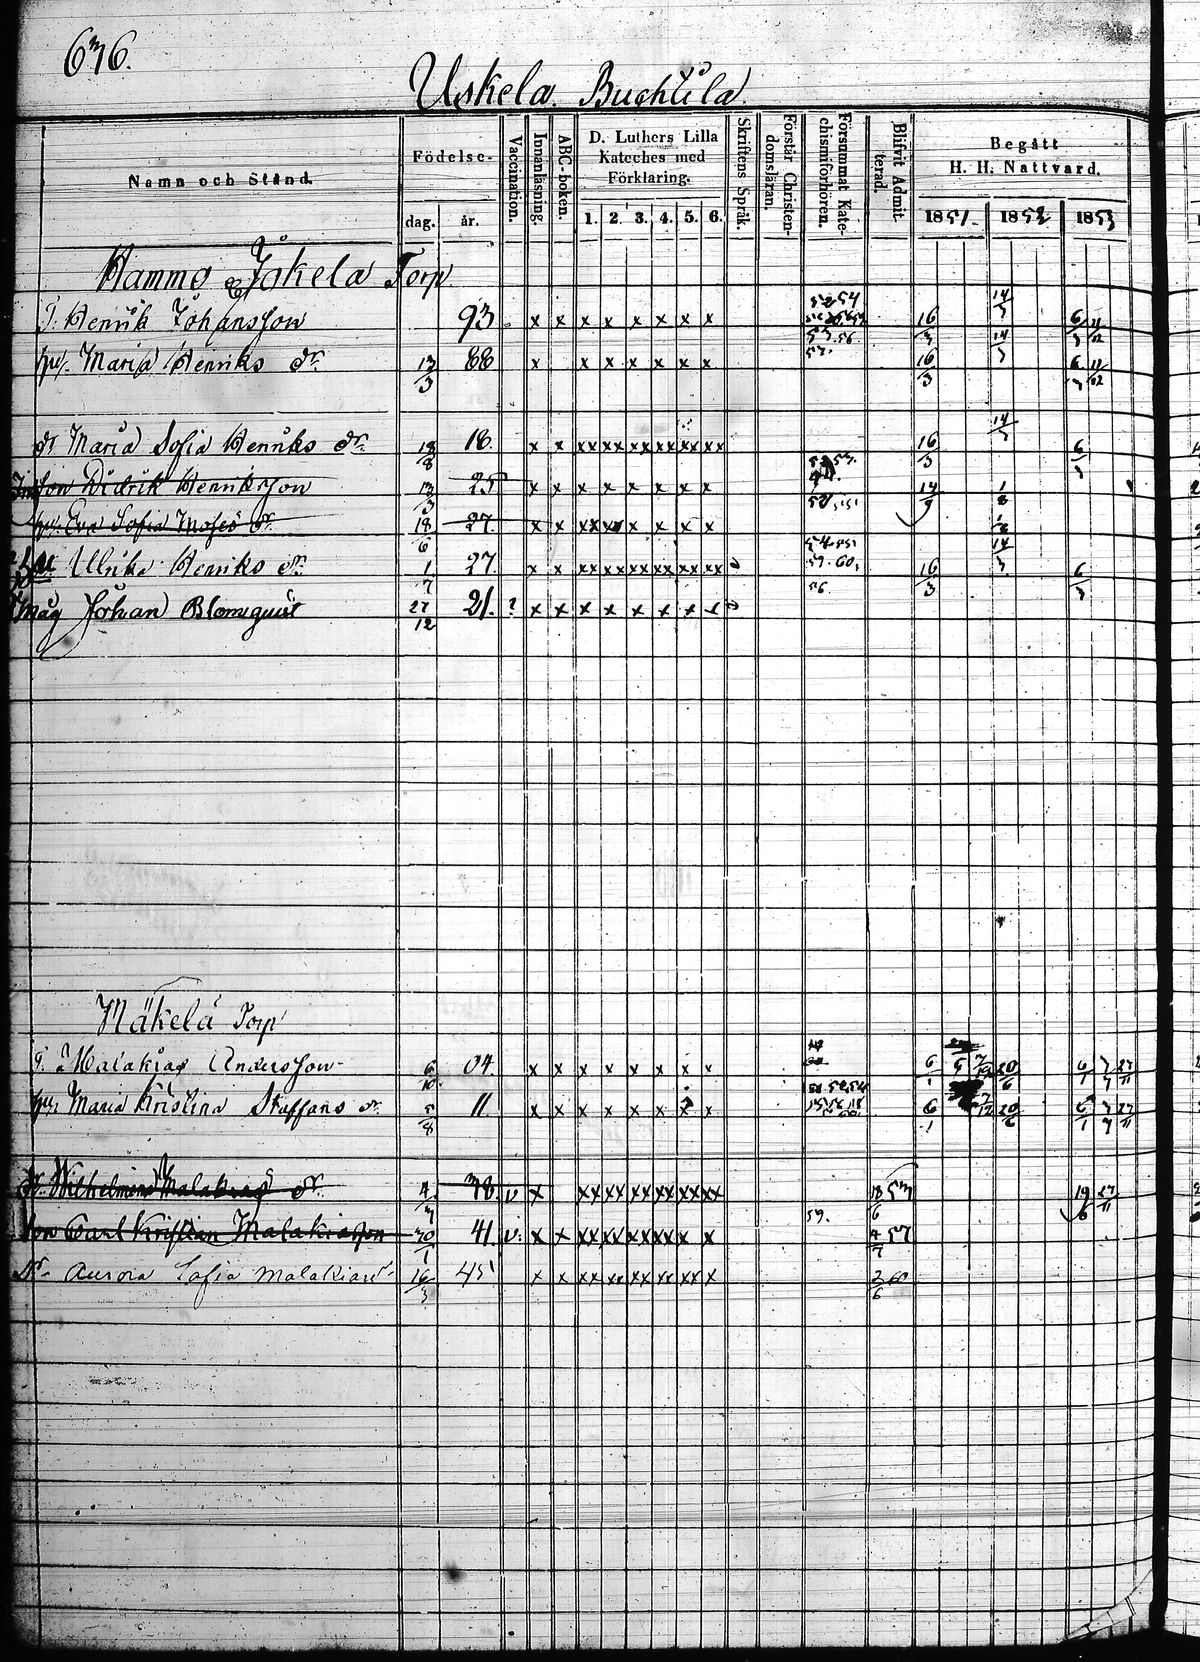 636.
Uskela. Buchtila
Namn och Stånd.
Födelse-
dag. år.
Vaccination.
Innanläsning.
ABC-boken.
D. Luthers Lilla
Kateches med
Förklaring.
1. 2. 3. 4. 5. 6.
Skriftens Språk.
Förstår Christen-
domsläran.
Försummat Kate-
chismiförhören.
Blifvit Admit-
terad.
Begått
H. H. Nattvard.
1851. 1852 1853
Torp
T. Henrik Johansson 93 x x x x x x x x 16/3 6/3 11/12
hu. Maria Henriks dr 13/3 88 x x x x x x x 16/3 6/3 11/12
dr Maria Sofia Henriks dr 18/8 18. x x xx xx xx xx xx xx 16/3 6/3
son Didrik Henriksson 13/3 25 x x x x x x x x
hu. Eva Sofia Moses dr 18/6 27. x x xx xx x x x x
Ulrika Henriks dr 1/7 27. x x xx xx xx xx xx xx 16/3 6/3
Måg Johan Blomquist 27/12 21. ? x x x x x x x x
Mäkelä Torp
T. Malakias Andersson 6/10 04. x x x x x x x x 6/1 20/6 6/1 27/11
hu. Maria Kristina Staffans dr 5/8 11 x x x x x x x x 6/1 20/6 6/1 27/11
dr. Wilhelmina Malakias dr 4/7 38. v x xx xx xx xx xx xx 18/6 53 19/6 27/11
son Carl Kristian Malakiasson 30/1 41. v. x x xx xx xx xx x x 59. 4/7 57
Dr Aurora Sofia Malakiasdr 16/3 45 x x xx xx xx xx xx x 2/6 60